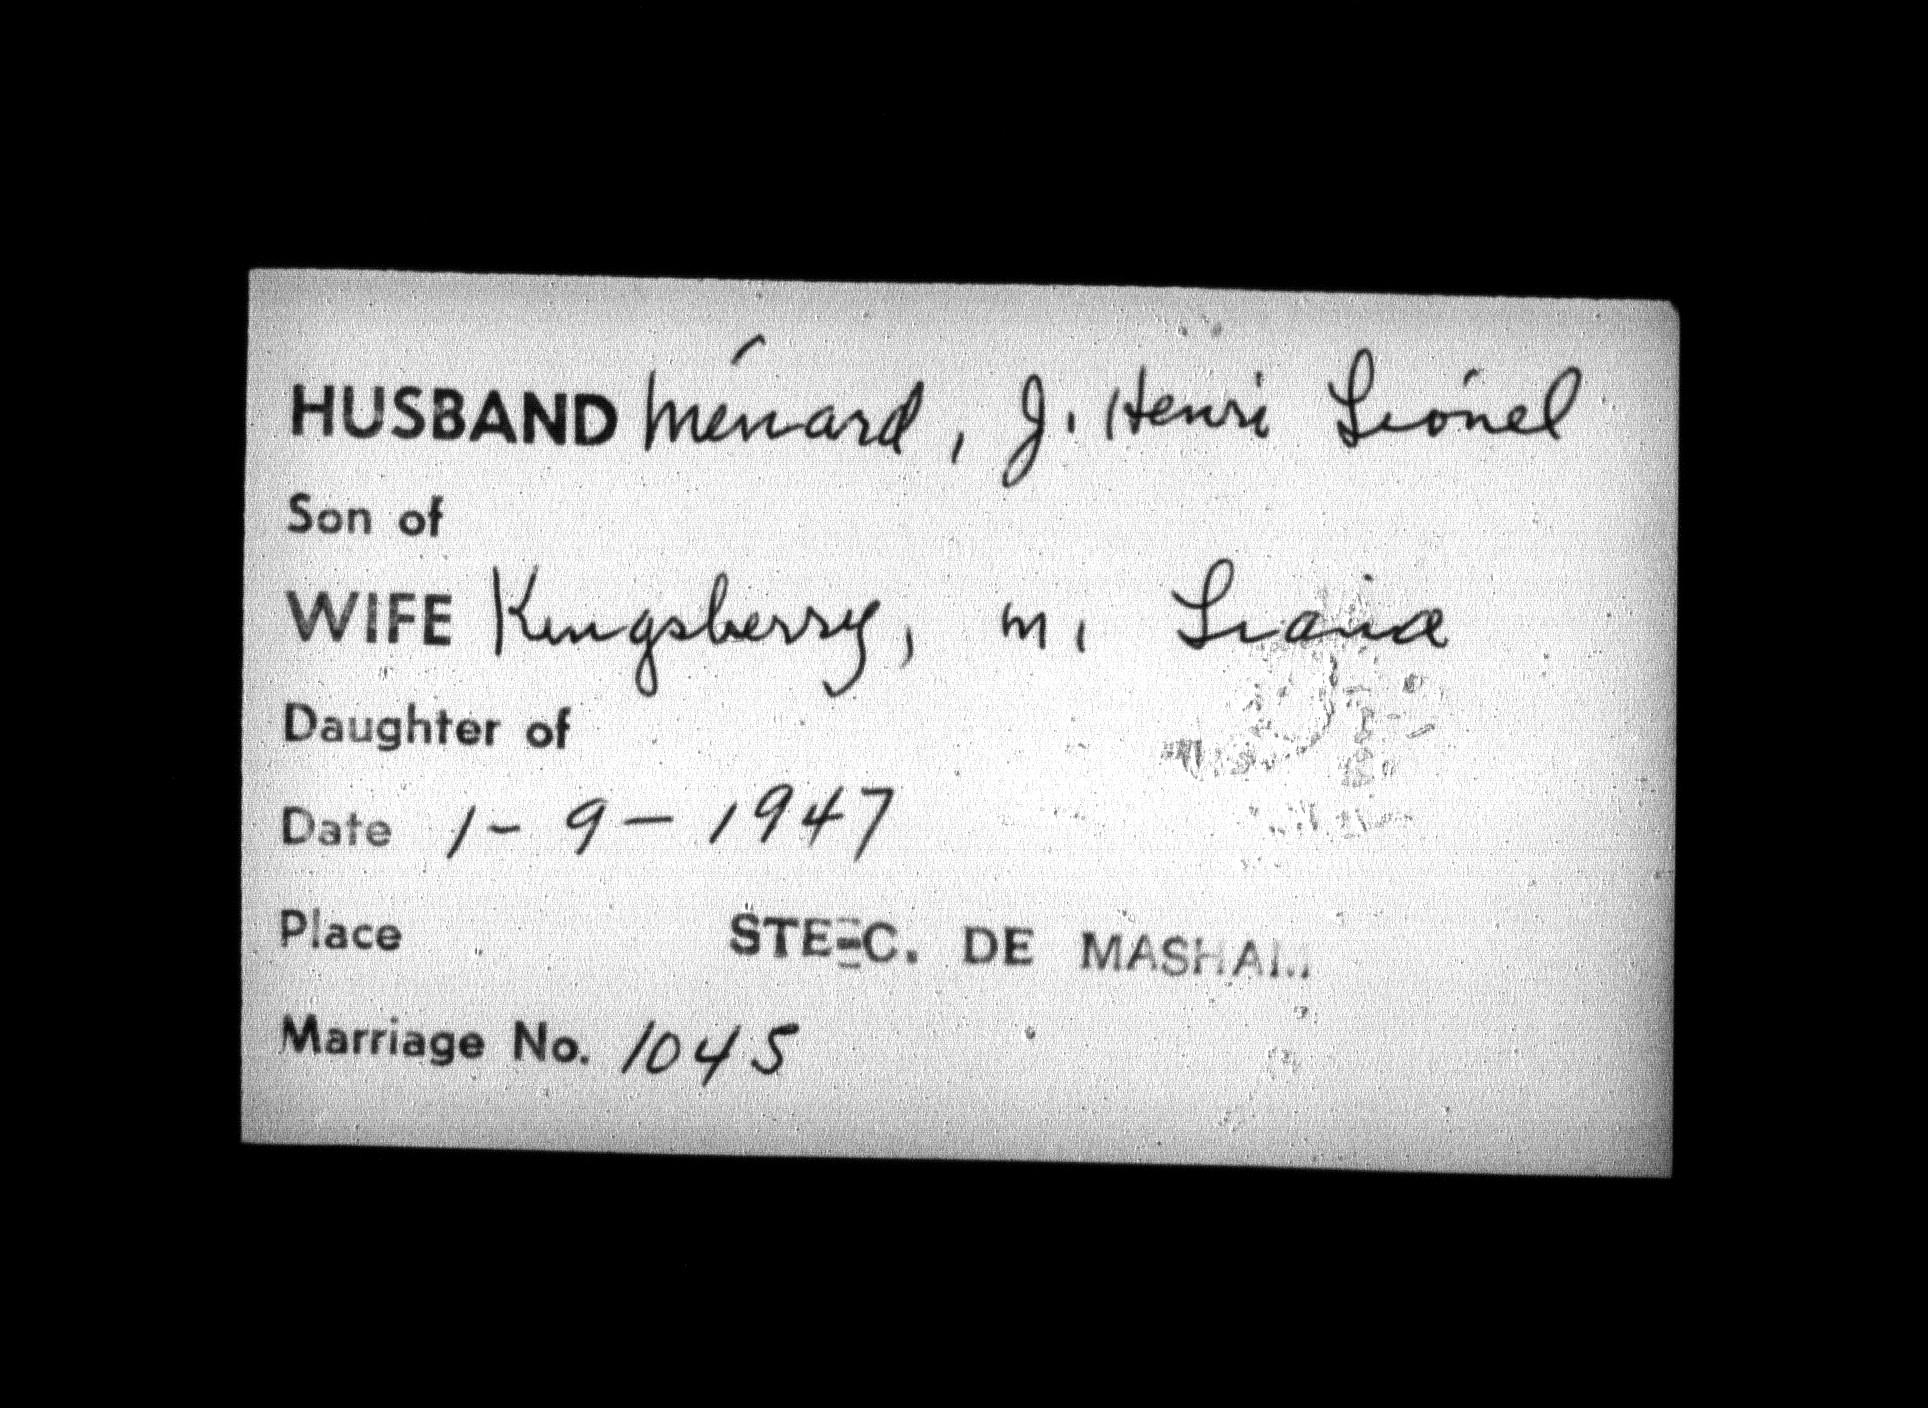 HUSBAND Ménard, J. Henri Lionel
Son of
WIFE Kingsberry, M. Liana
Daughter of
Date 1-9-1947
Place STE-C. DE MASHAM
Marriage No. 1045